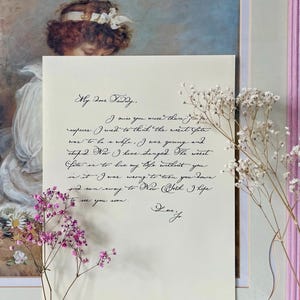 My dear Teddy,
I miss you more than I can
express. I used to think the worst fate
was to be a wife. I was young and
stupid. Now I have changed. The worst
fate is to live my life without you
in it. I was wrong to turn you down
and run away to New York. I hope
to see you soon.
Love,
Jo